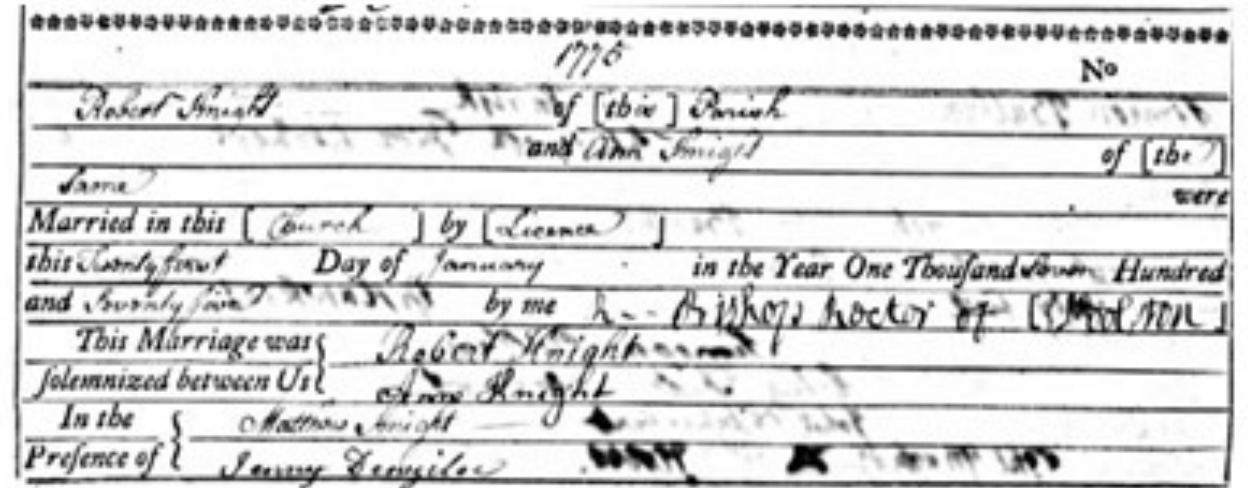 1775
No
Robert Knight of [this] Parish
and Ann Knight of [the]
Same were
Married in this [Church] by [Licence]
this Twenty first Day of January in the Year One Thouſand Seven Hundred
and Seventy five by me Bishop Rector of
This Marriage was Robert Knight
ſolemnized between Us Anne Knight
In the Matthew Knight
Preſence of Jenny